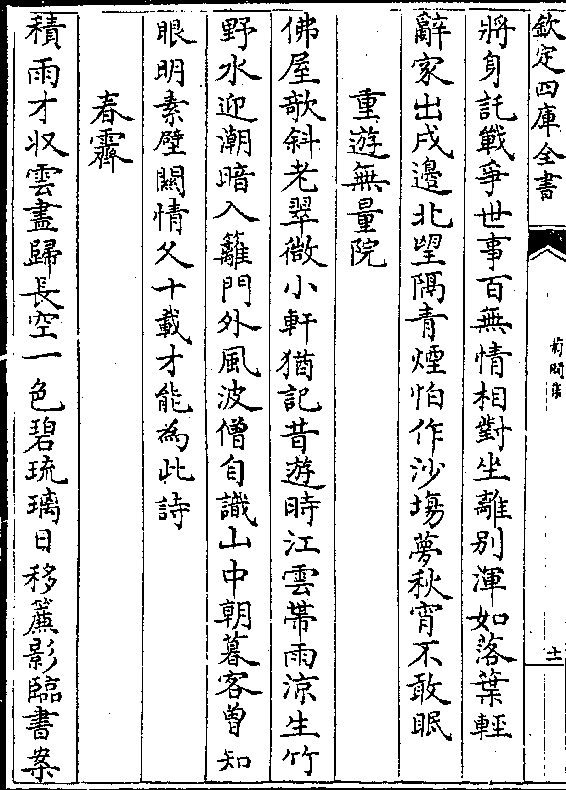 欽定四庫全書
十一
將身託戰爭世事百無情相對坐離別渾如落葉輕
辭家出戍邊北望隔青煙怕作沙塲夢秋宵不敢眠
重遊無量院
佛屋欹斜老翠微小軒猶記昔遊時江雲帶雨涼生竹
野水迎潮暗入籬門外風波僧自識山中朝暮客曾知
眼明素壁闗情乆十載才能為此詩
春霽
積雨才収雲盡歸長空一色碧琉璃日移簾影臨書案